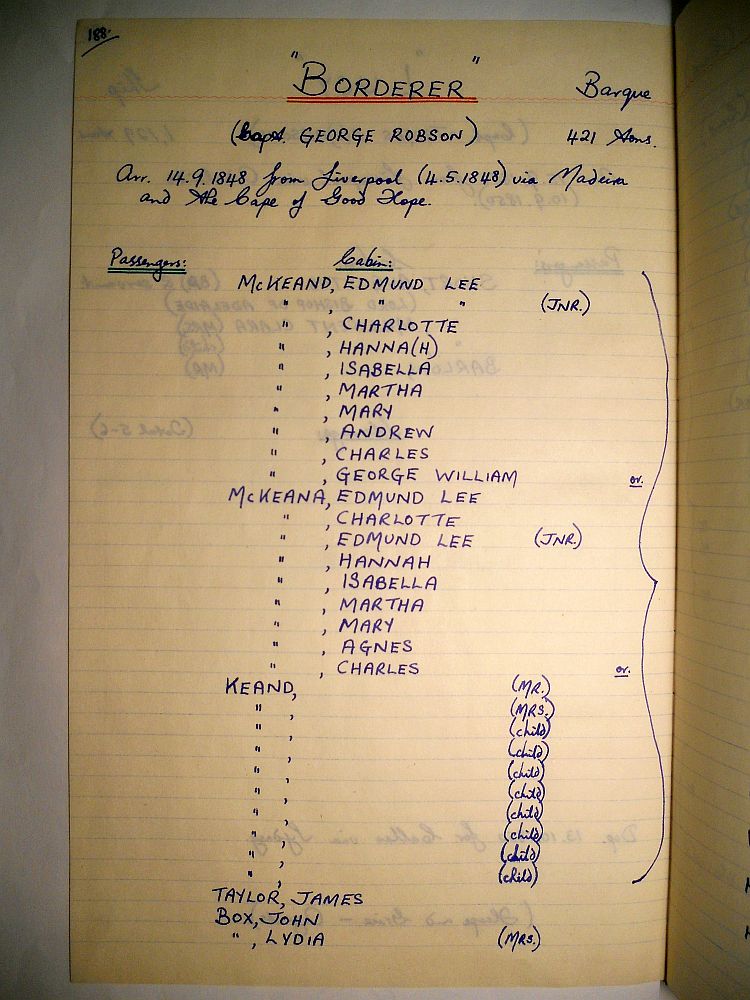 188.
"BORDERER" Barque
(Capt. GEORGE ROBSON) 421 tons.
Arr. 14.9.1848 from Liverpool (4.5.1848) via Madeira
and the Cape of Good Hope.
Passengers: Cabin:
McKEAND, EDMUND LEE
" , " " (JNR.)
" , CHARLOTTE
" , HANNA(H)
" , ISABELLA
" , MARTHA
" , MARY
" , ANDREW
" , CHARLES
" , GEORGE WILLIAM or.
McKEANA, EDMUND LEE
" , CHARLOTTE
" , EDMUND LEE (JNR.)
" , HANNAH
" , ISABELLA
" , MARTHA
" , MARY
" , AGNES
" , CHARLES or.
KEAND, (MR.)
" , (MRS.)
" , (child)
" , (child)
" , (child)
" , (child)
" , (child)
" , (child)
" , (child)
" , (child)
TAYLOR, JAMES
BOX, JOHN
" , LYDIA (MRS.)